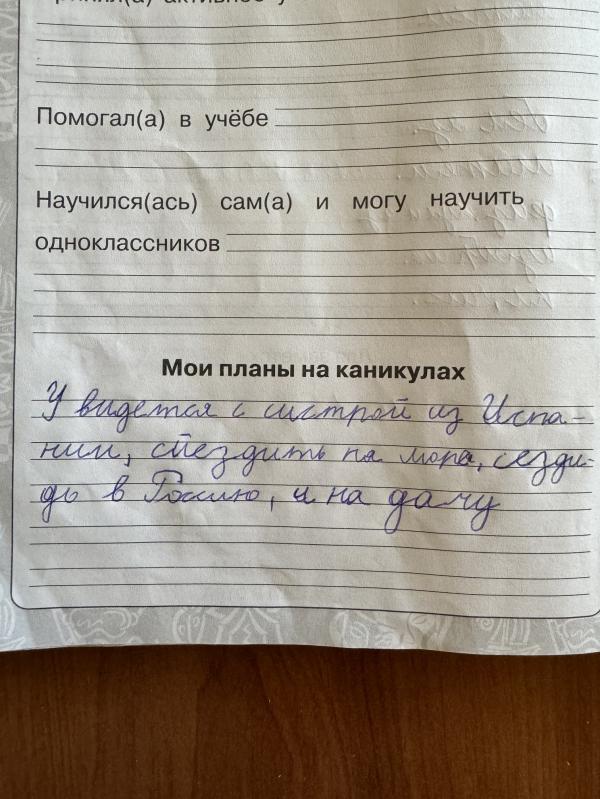 Помогал(а) в учёбе
Научился(ась) сам(а) и могу научить
одноклассников
Мои планы на каникулах
У видется с систрой из Испа-
нии, сьездить на мора, сезди-
дь в Россию, и на дачу